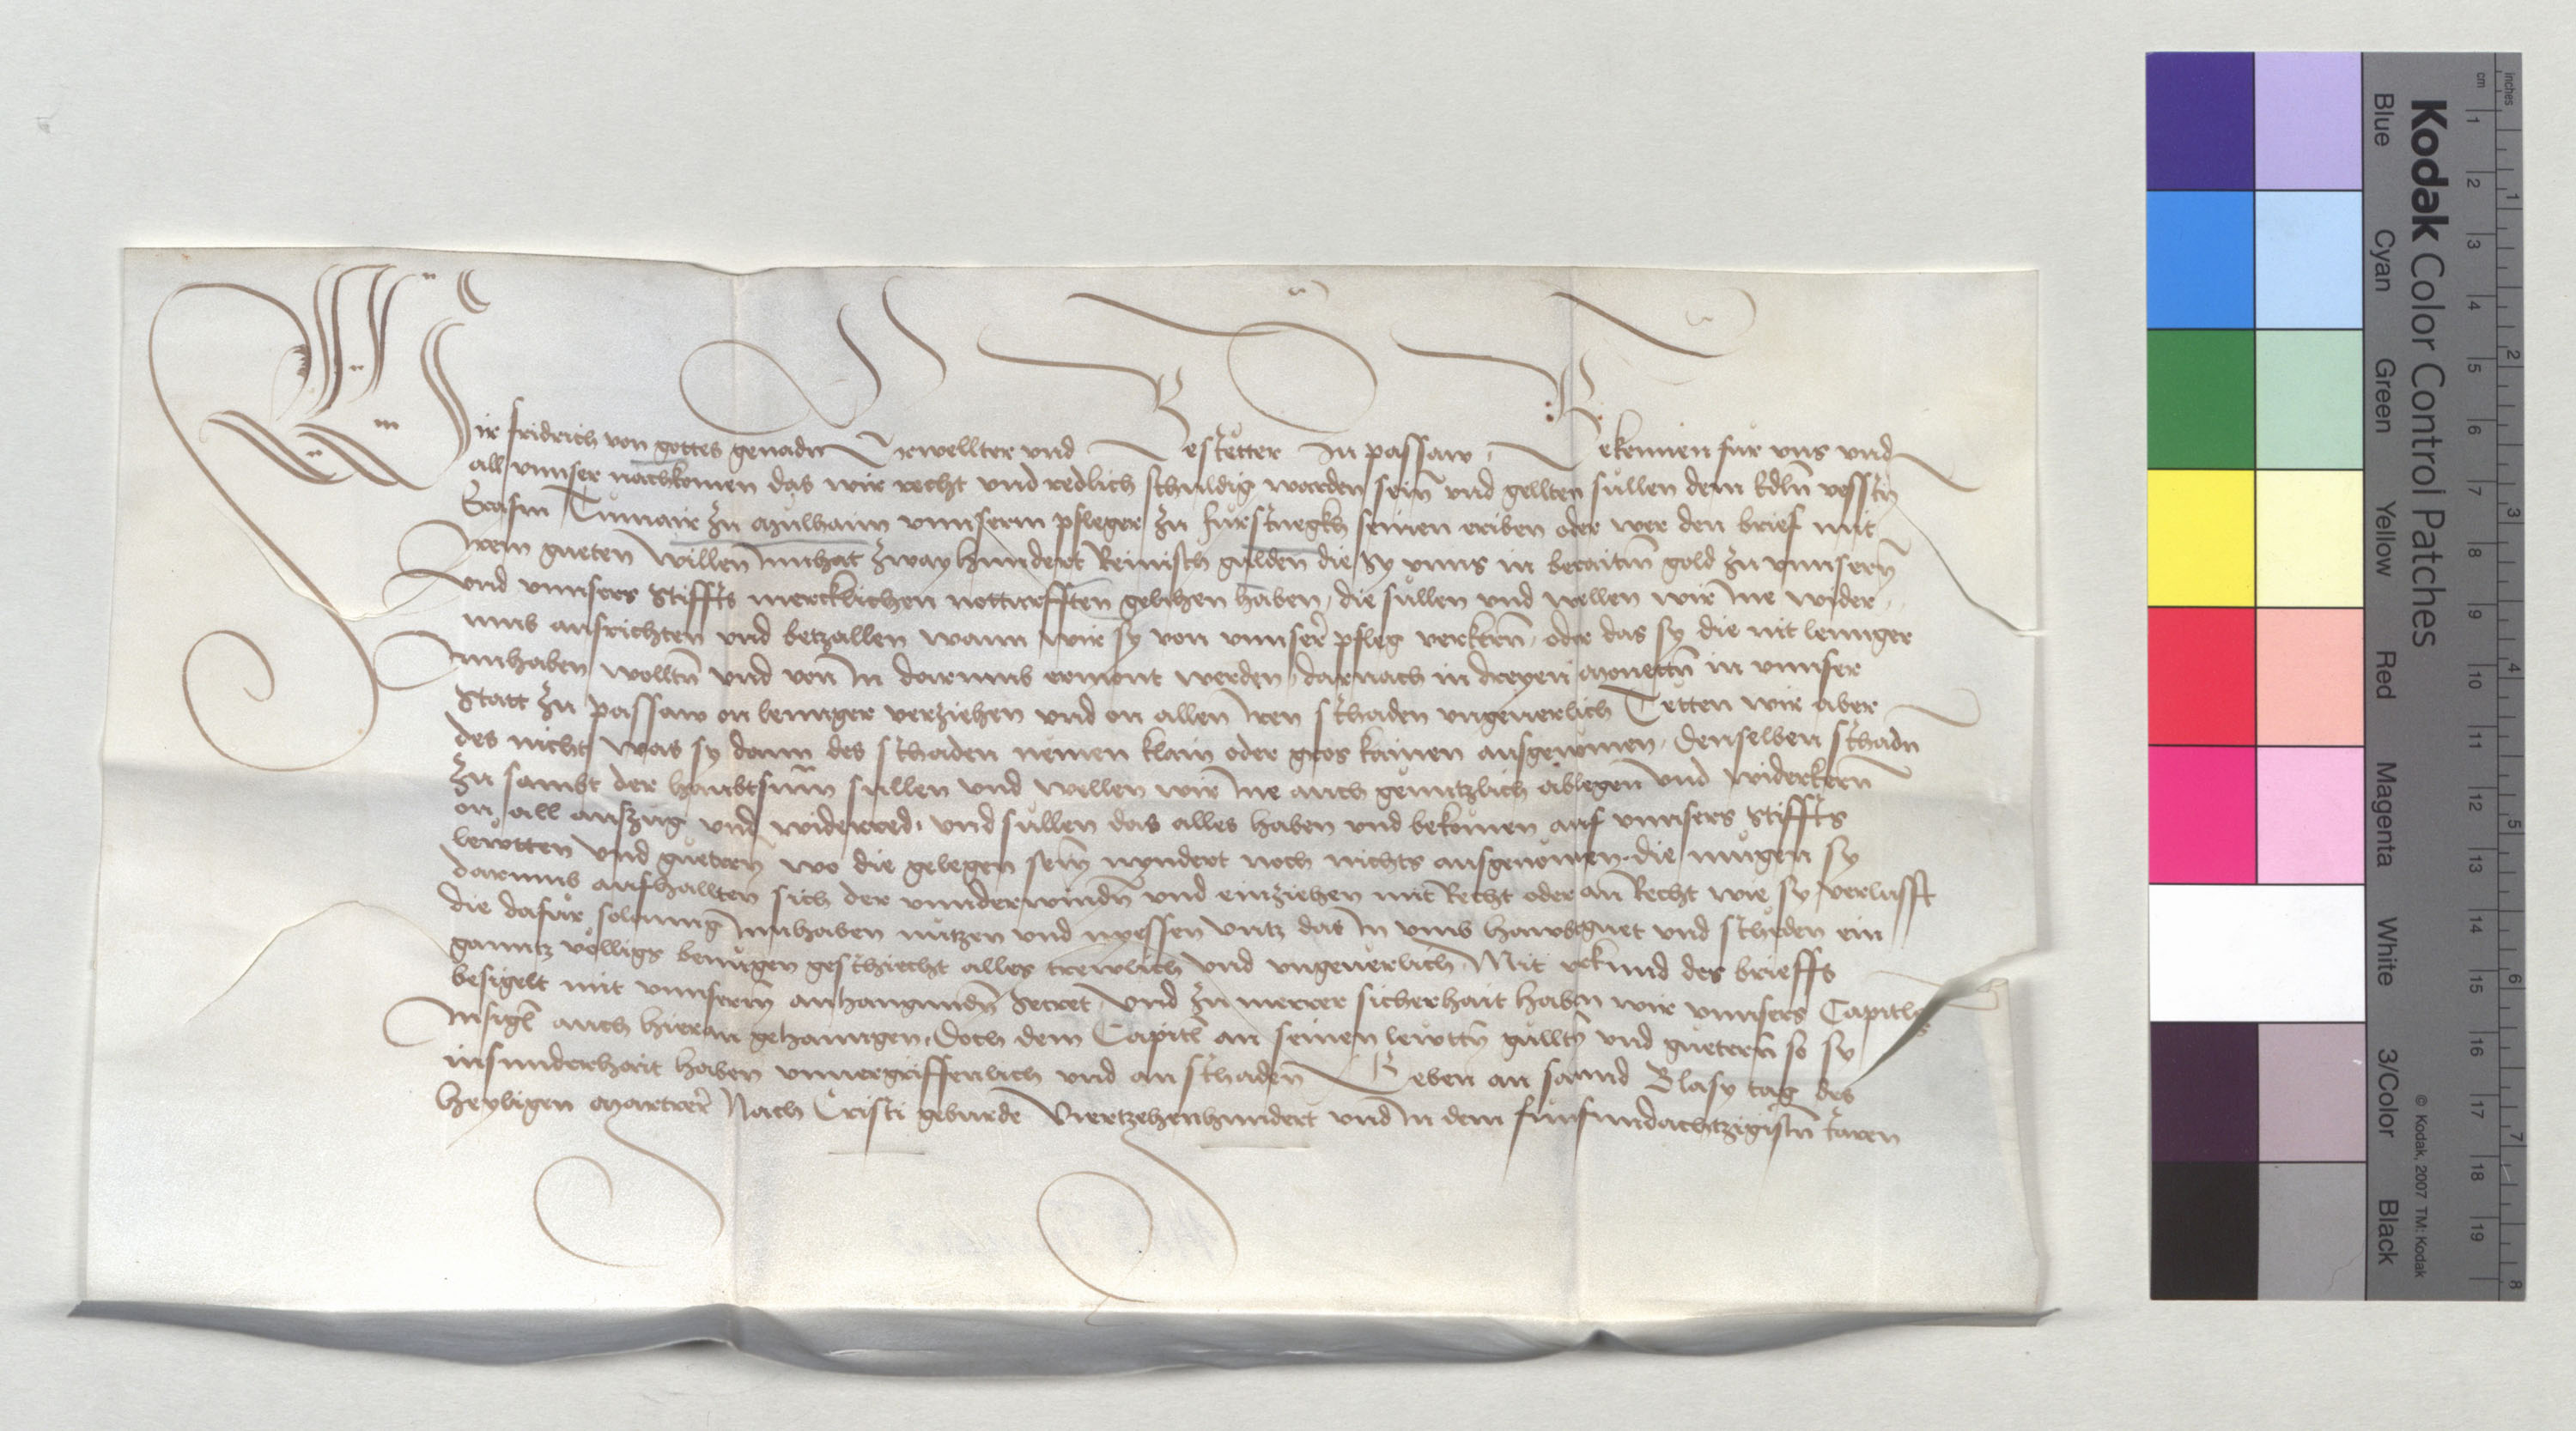 Wir fridrich von gottes genadn Erwellter und Bestetter In passaw, Bekennen fur vns und
all vnnser nachkomen das wir recht und redlich schuldig worden sein und gellten sullen dem Edln vessten
Erasm Tumair zu mulhaim vnnserm pfleger zu furstnegkh seinen eriben oder wer den brief mit
Irem gueten willen Innhat zway hundert Reinisch gulden die sy vnns in beraitm gold zu vnnsern
und vnnsers Stiffts mercklichen notturfften gelihen haben, die sullen und wellen wir Ine wider
umb ausrichten und betzallen wann wir sy von vnnser pfleg verkern, oder das sy die nit lennger
Innhaben wolltn und von In darumb ermont werden, darnach in dreyen monettn in vnnser
Statt zu passaw on lennger verziehen und on allen Iren schaden ungeuerlich Tetten wir aber
des nicht was sy dann des schaden nemen klain oder gros kainen ausgenomen, denselben schadn
zu sambt der haubtsum sullen und wellen wir Ine auch genntzlich ablegen und widerkern
on all auszug und widerred, und sullen das alles haben und bekomen auf vnnsers Stiffts
lewtten und guetern wo die gelegen sein nyndert noch nichts ausgenomen, die mugen sy
darumb aufhallten sich der vnnderwindn und einziehen mit Recht oder an Recht wie sy verlusst
die dafur solanng Innhaben nutzen und nyessen untz das In umb hawbtguet und scheden ein
ganntz volligs benugen geschiecht alles trewlich und ungeuerlich, Mit urkund des brieffs
besigelt mit vnnserm anhangundn Secret, und zu merer sicherhait habn wir vnnsers Capitls
Insigl auch hieran gehanngen, Doch dem Capitl an seinen lewttn gulltn und guetern so sy
insunderhait haben unuergriffenlich und an schaden Geben an sannd Blasy tag des
heyligen martrer Nach Cristi geburde Viertzehenhundert und In dem funfundachtzigistn Jaren
Kodak Color Control Patches
Blue Cyan Green Yellow Red Magenta White 3/Color Black
© Kodak, 2007 TM: Kodak
inches 1 2 3 4 5 6 7 8
cm 1 2 3 4 5 6 7 8 9 10 11 12 13 14 15 16 17 18 19